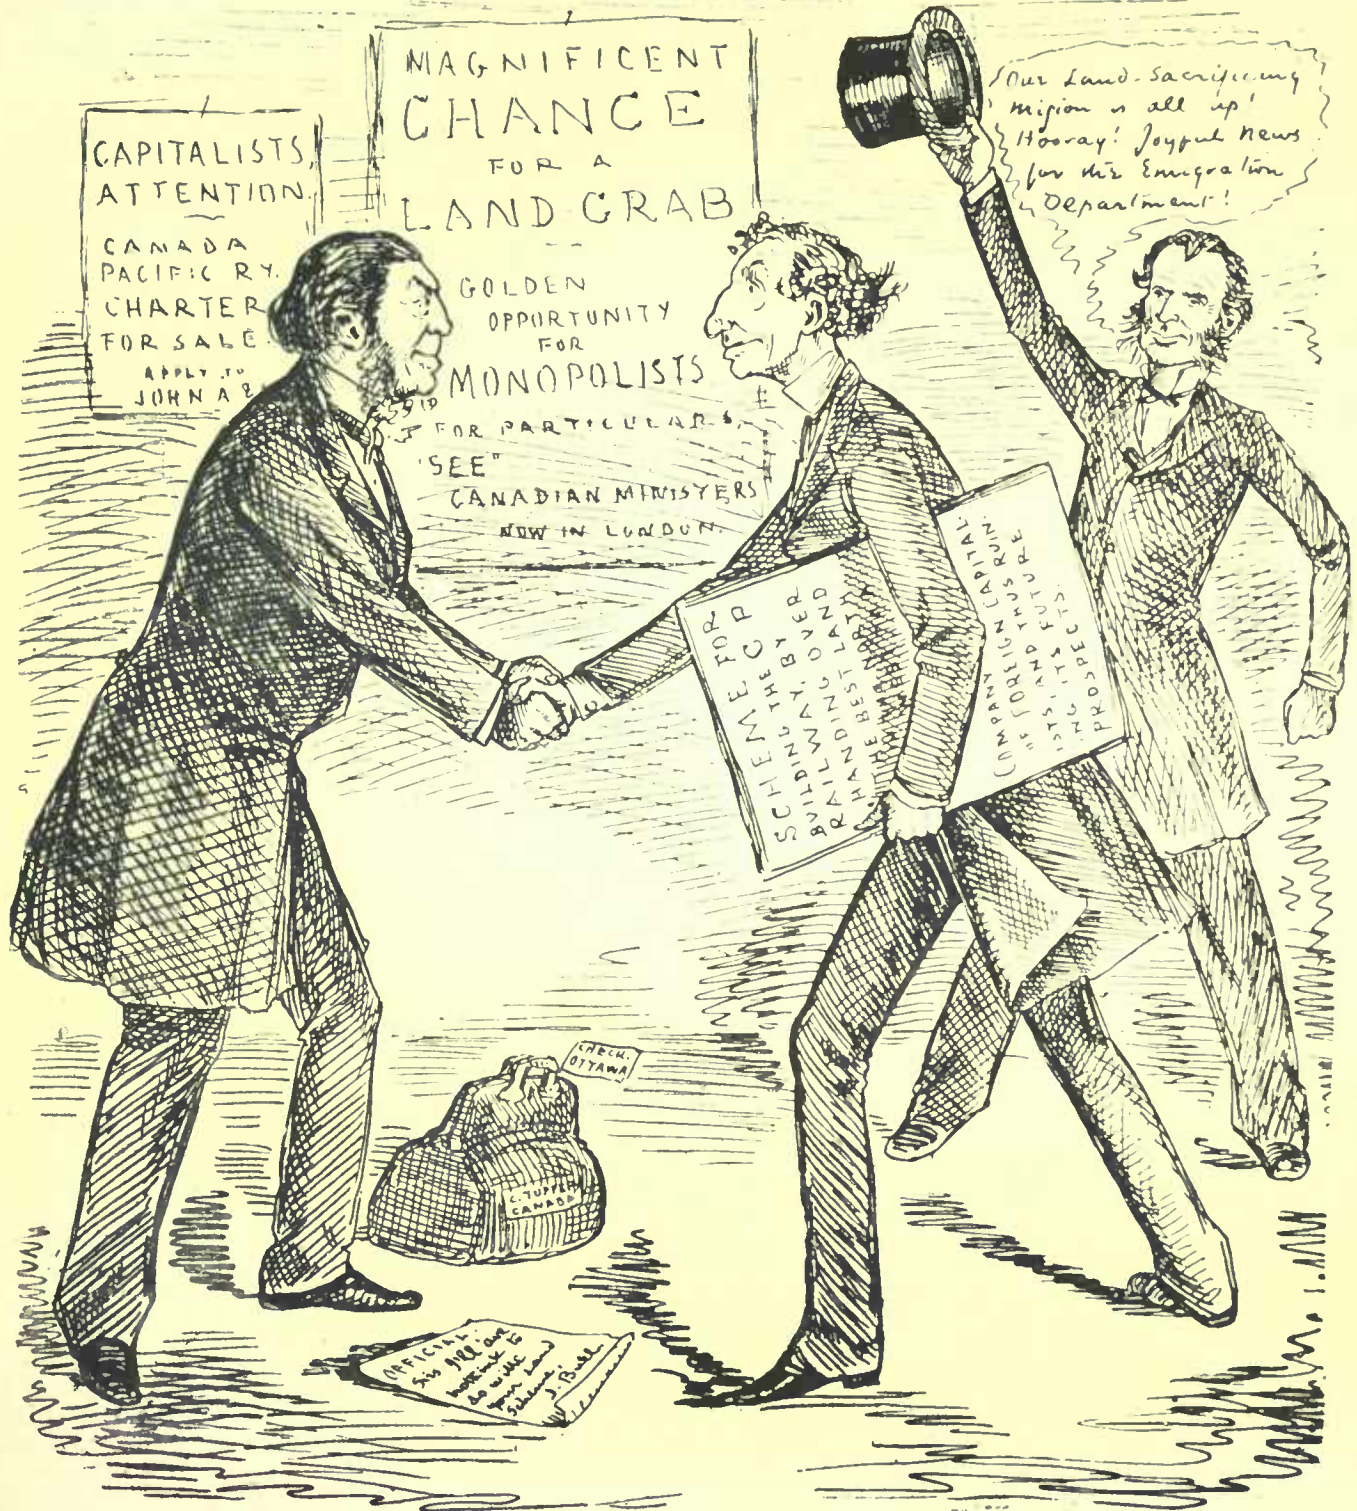 CAPITALISTS,
ATTENTION.
CANADA
PACIFIC RY.
CHARTER
FOR SALE.
APPLY TO
JOHN A &
MAGNIFICENT
CHANCE
FOR A
LAND GRAB
GOLDEN
OPPORTUNITY
FOR
MONOPOLISTS
FOR PARTICULARS,
"SEE"
CANADIAN MINISTERS
NOW IN LONDON.
Our Land-Sacrificing
mission is all up!
Hooray! Joyful News
for the Emigration
Department!
SCHEME FOR
BUILDING THE C P
RAILWAY, BY
HANDING OVER
THE BEST LAND
COMPANY
OF FOREIGN CAPITAL-
ISTS, AND THUS RUIN-
ING ITS FUTURE
PROSPECTS.
CHECK.
OTTAWA
C. TUPPER
CANADA
OFFICIAL.
Sirs
to
do with
your Land
Scheme
J. Bull.